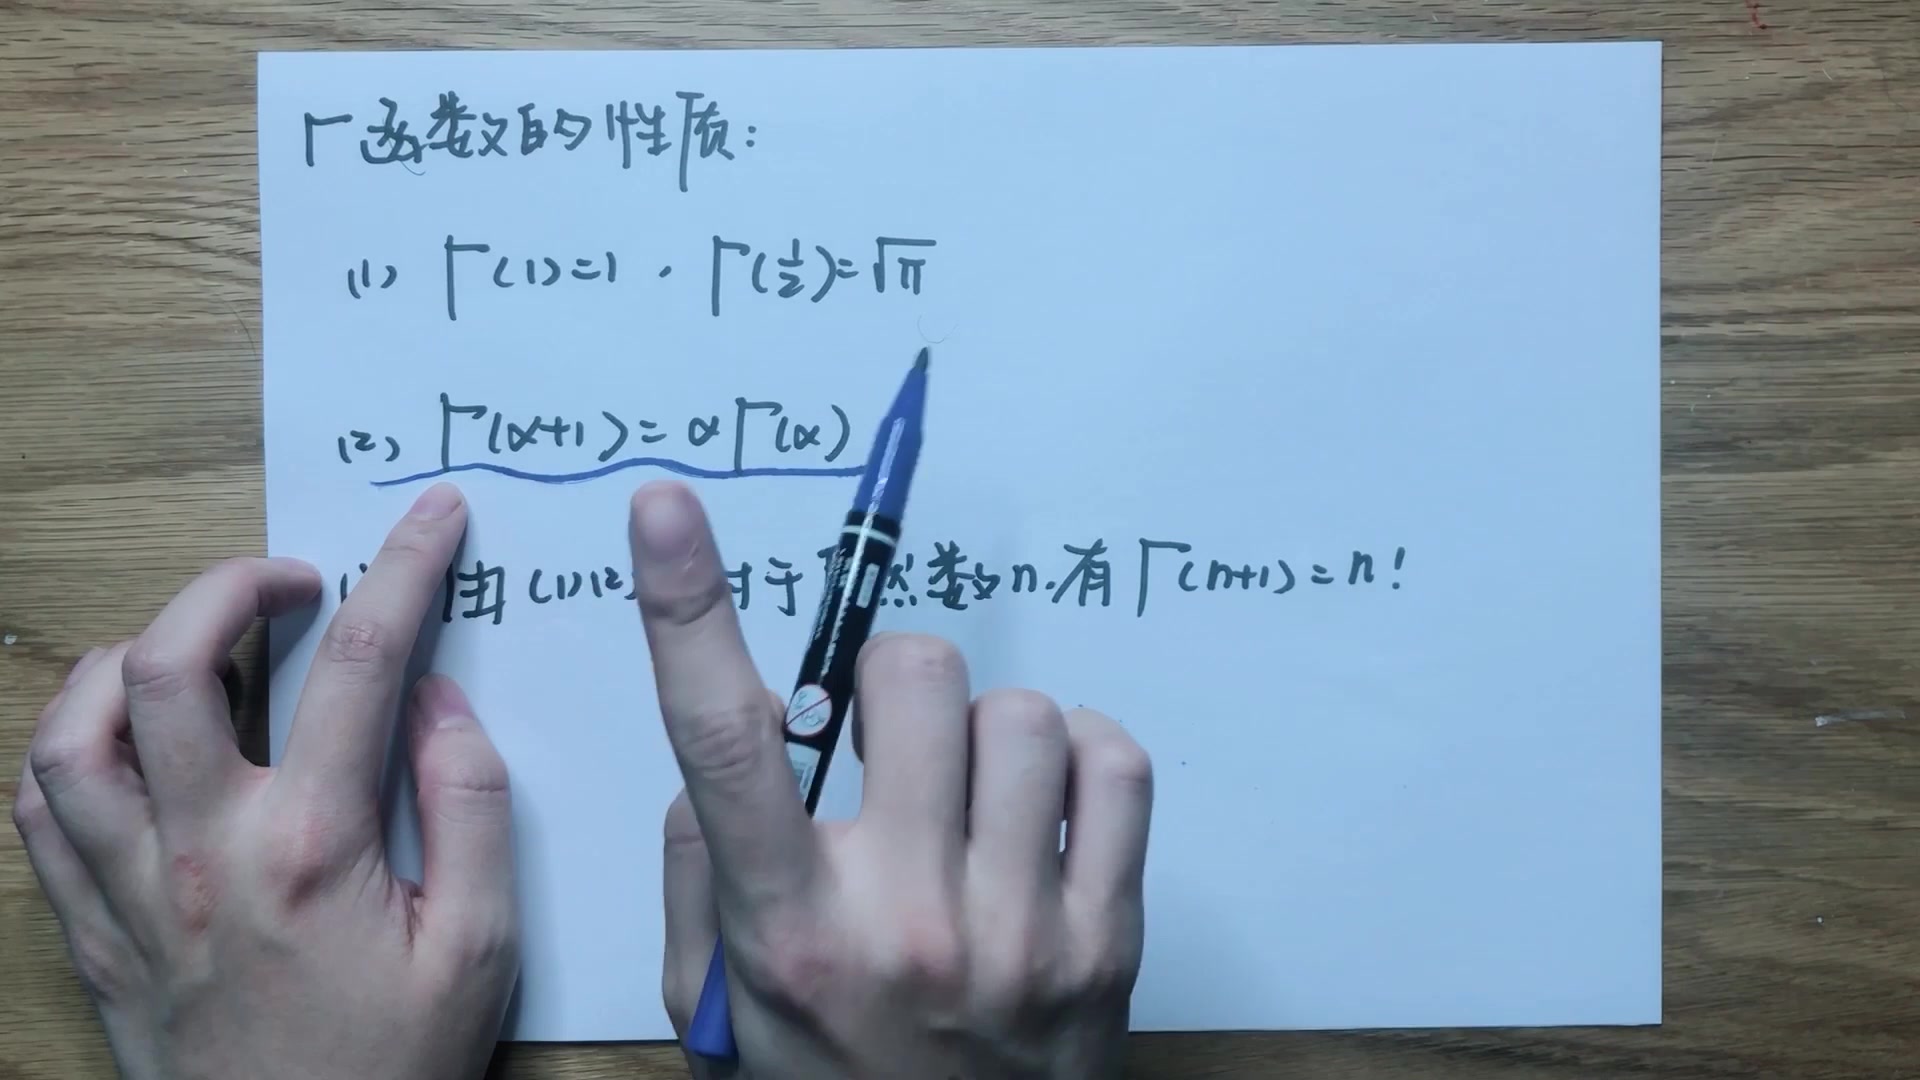 Γ函数的性质:
(1) Γ(1)=1, Γ(1/2)=√π
(2) Γ(α+1)=αΓ(α)
由(1)(2) 对于自然数n.有Γ(n+1)=n!